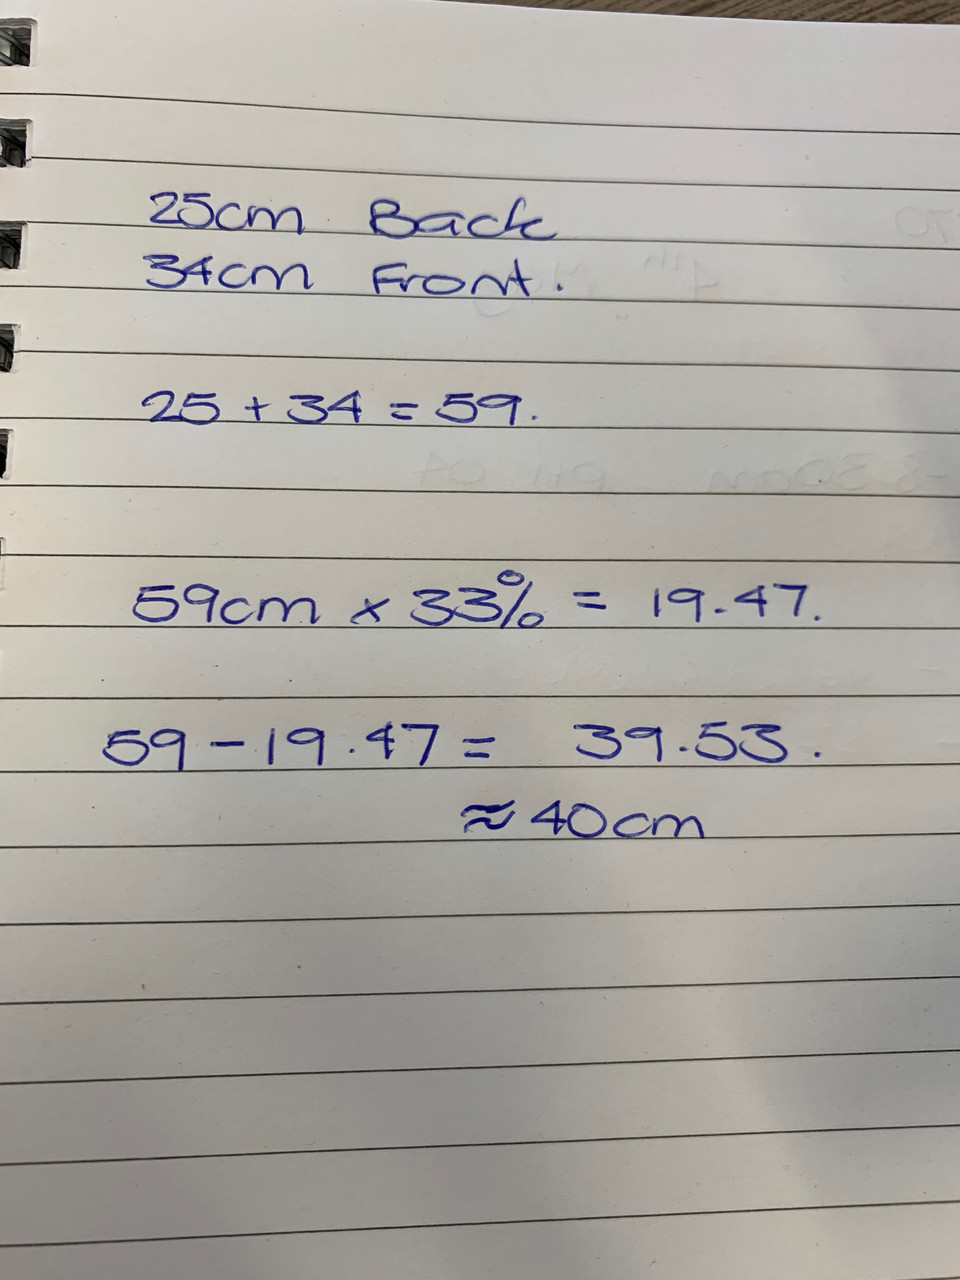 25cm Back
34cm Front.
25 + 34 = 59.
59cm x 33% = 19.47.
59 - 19.47 = 39.53.
≈ 40cm